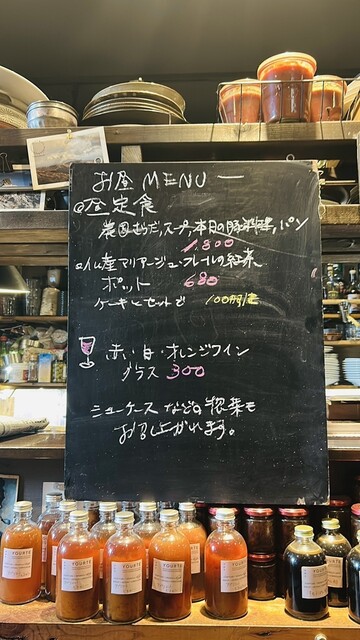 お昼 MENU ー
◎昼定食
農園サラダ,スープ,本日の豚料理,パン
1,800
◎仏産マリアージュ・フレールの紅茶
ポット 680
ケーキとセットで 100円引
赤・白・オレンジワイン
グラス 300
ショーケース などの 惣菜も
お召し上がれます。
YOURTE
YOURTE
YOURTE